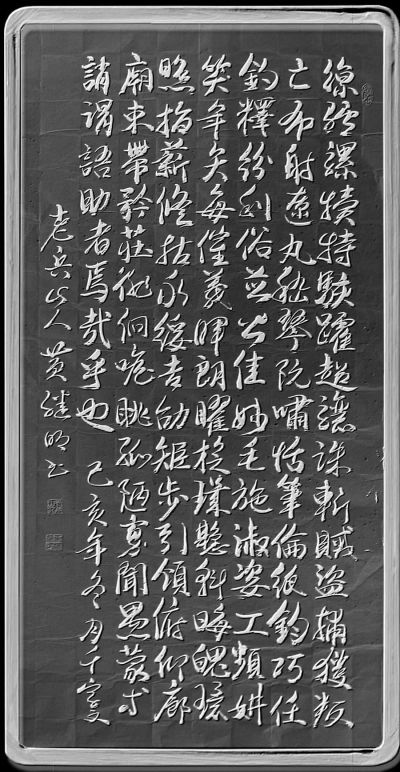 涼驢騾犢特駭躍超驤誅斬賊盜捕獲叛
亡布射遼丸嵇琴阮嘯恬筆倫紙鈞巧任
釣釋紛利俗並皆佳妙毛施淑姿工顰妍
笑年矢每催羲暉朗曜旋璣懸斡晦魄環
照指薪修祜永綏吉劭矩步引領俯仰廊
廟束帶矜莊徘徊瞻眺孤陋寡聞愚蒙等
誚謂語助者焉哉乎也 己亥年冬月千字文
老兵山人黄继明书